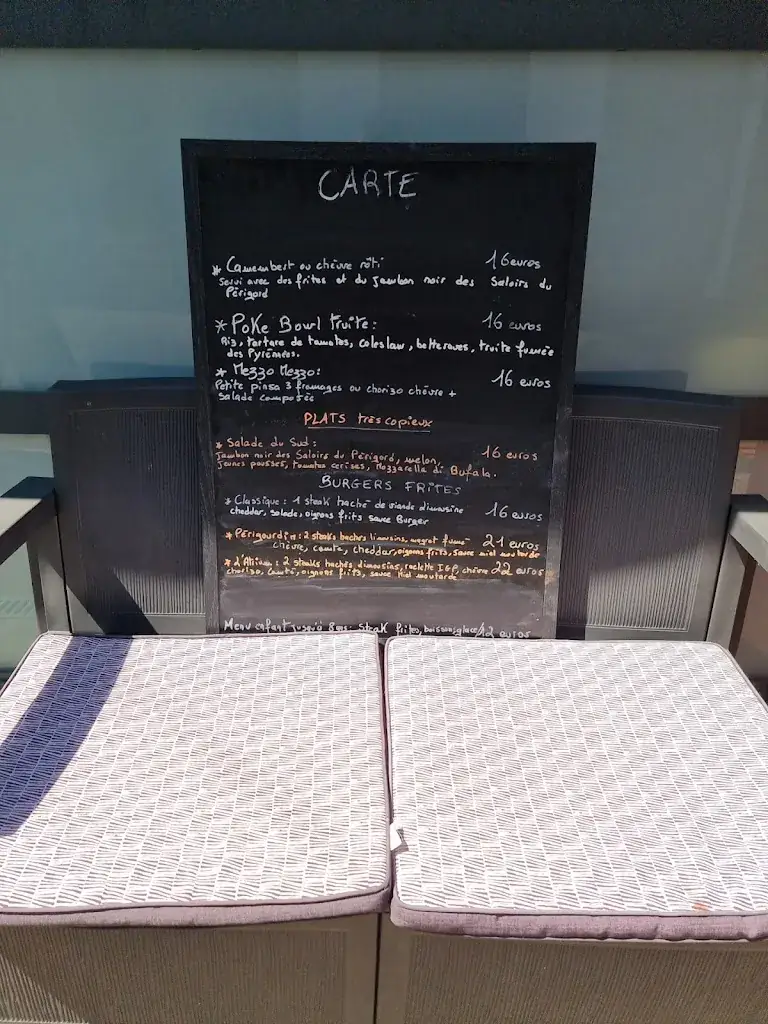 CARTE
* Camembert ou chèvre rôti 16 euros
Servi avec des frites et du jambon noir des Saloirs du
Périgord
* Poke Bowl Truite: 16 euros
Riz, tartare de tomates, coleslaw, betteraves, truite fumée
des Pyrénées.
* Mezzo Mezzo: 16 euros
Petite pinsa 3 fromages ou chorizo chèvre +
Salade composée
PLATS très copieux
* Salade du Sud: 16 euros
Jambon noir des Saloirs du Périgord, melon,
Jeunes pousses, tomates cerises, Mozzarella di Bufala.
BURGERS FRITES
* Classique: 1 steak haché de viande limousine 16 euros
cheddar, salade, oignons frits sauce Burger
* Périgourdin: 2 steaks haches limousins, magret fumé 21 euros
chèvre, comté, cheddar, oignons frits, sauce miel moutarde
* L'Atrium: 2 steaks hachés limousins, raclette IGP, chèvre 22 euros
chorizo, comté, oignons frits, sauce miel moutarde
Menu enfant jusqu'à 8 ans: steak frites, boisson, glace 12 euros